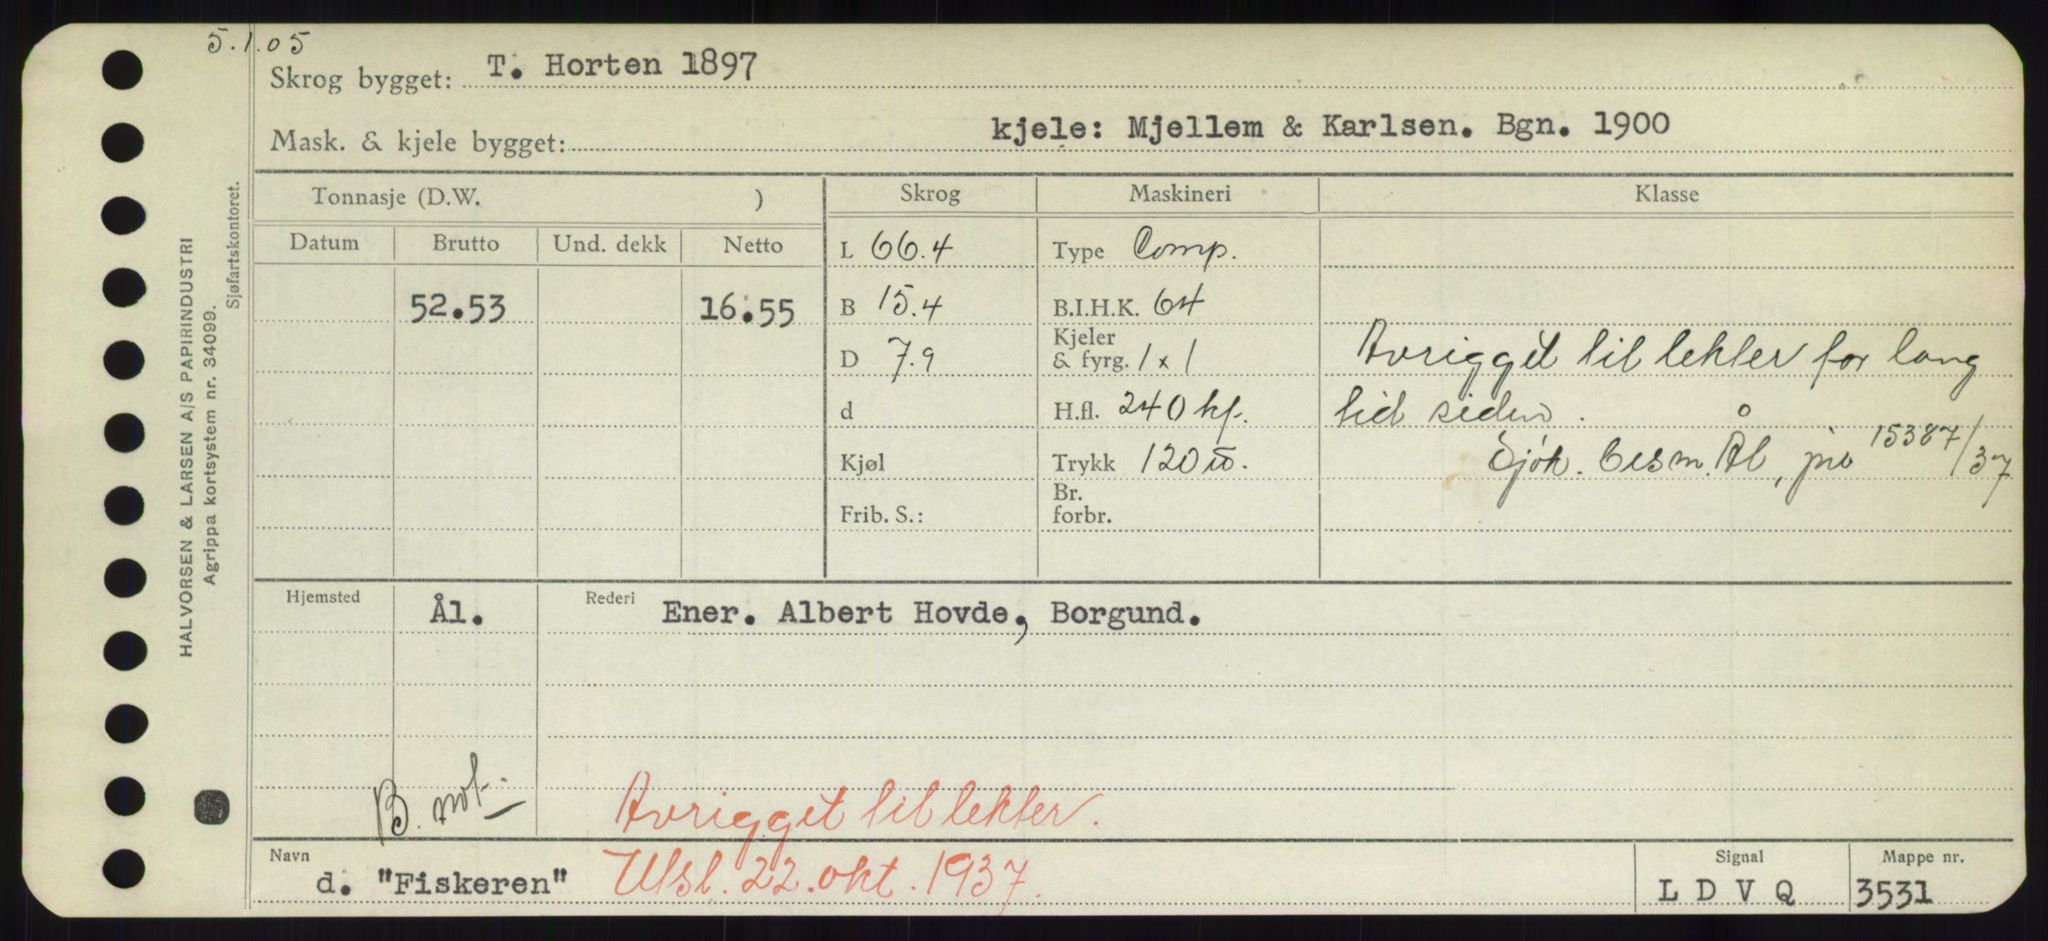 5.1.05
Skrog bygget: T. Horten 1897
Mask. & kjele bygget: kjele: Mjellem & Karlsen. Bgn. 1900
Tonnasje (D.W. ) Skrog Maskineri Klasse
Datum Brutto Und. dekk Netto
L 66.4 Type Comp.
52.53 16.55 B 15.4 B.I.H.K. 64
D 7.9 Kjeler & fyrg. 1 x 1 Avrigget til lekter for lang
d H.fl. 240 hf. tid siden.
Kjøl Trykk 120 Sjøk. besm. Ål, 15387/37
Frib. S.: Br. forbr.
Hjemsted Ål. Rederi Ener. Albert Hovde, Borgund.
B. not.
Avrigget til lekter.
Navn d. "Fiskeren" Utsl. 22. okt. 1937.
Signal L D V Q
Mappe nr. 3531
HALVORSEN & LARSEN A/S PAPIRINDUSTRI
Agrippa kortsystem nr. 34099.
Sjøfartskontoret.